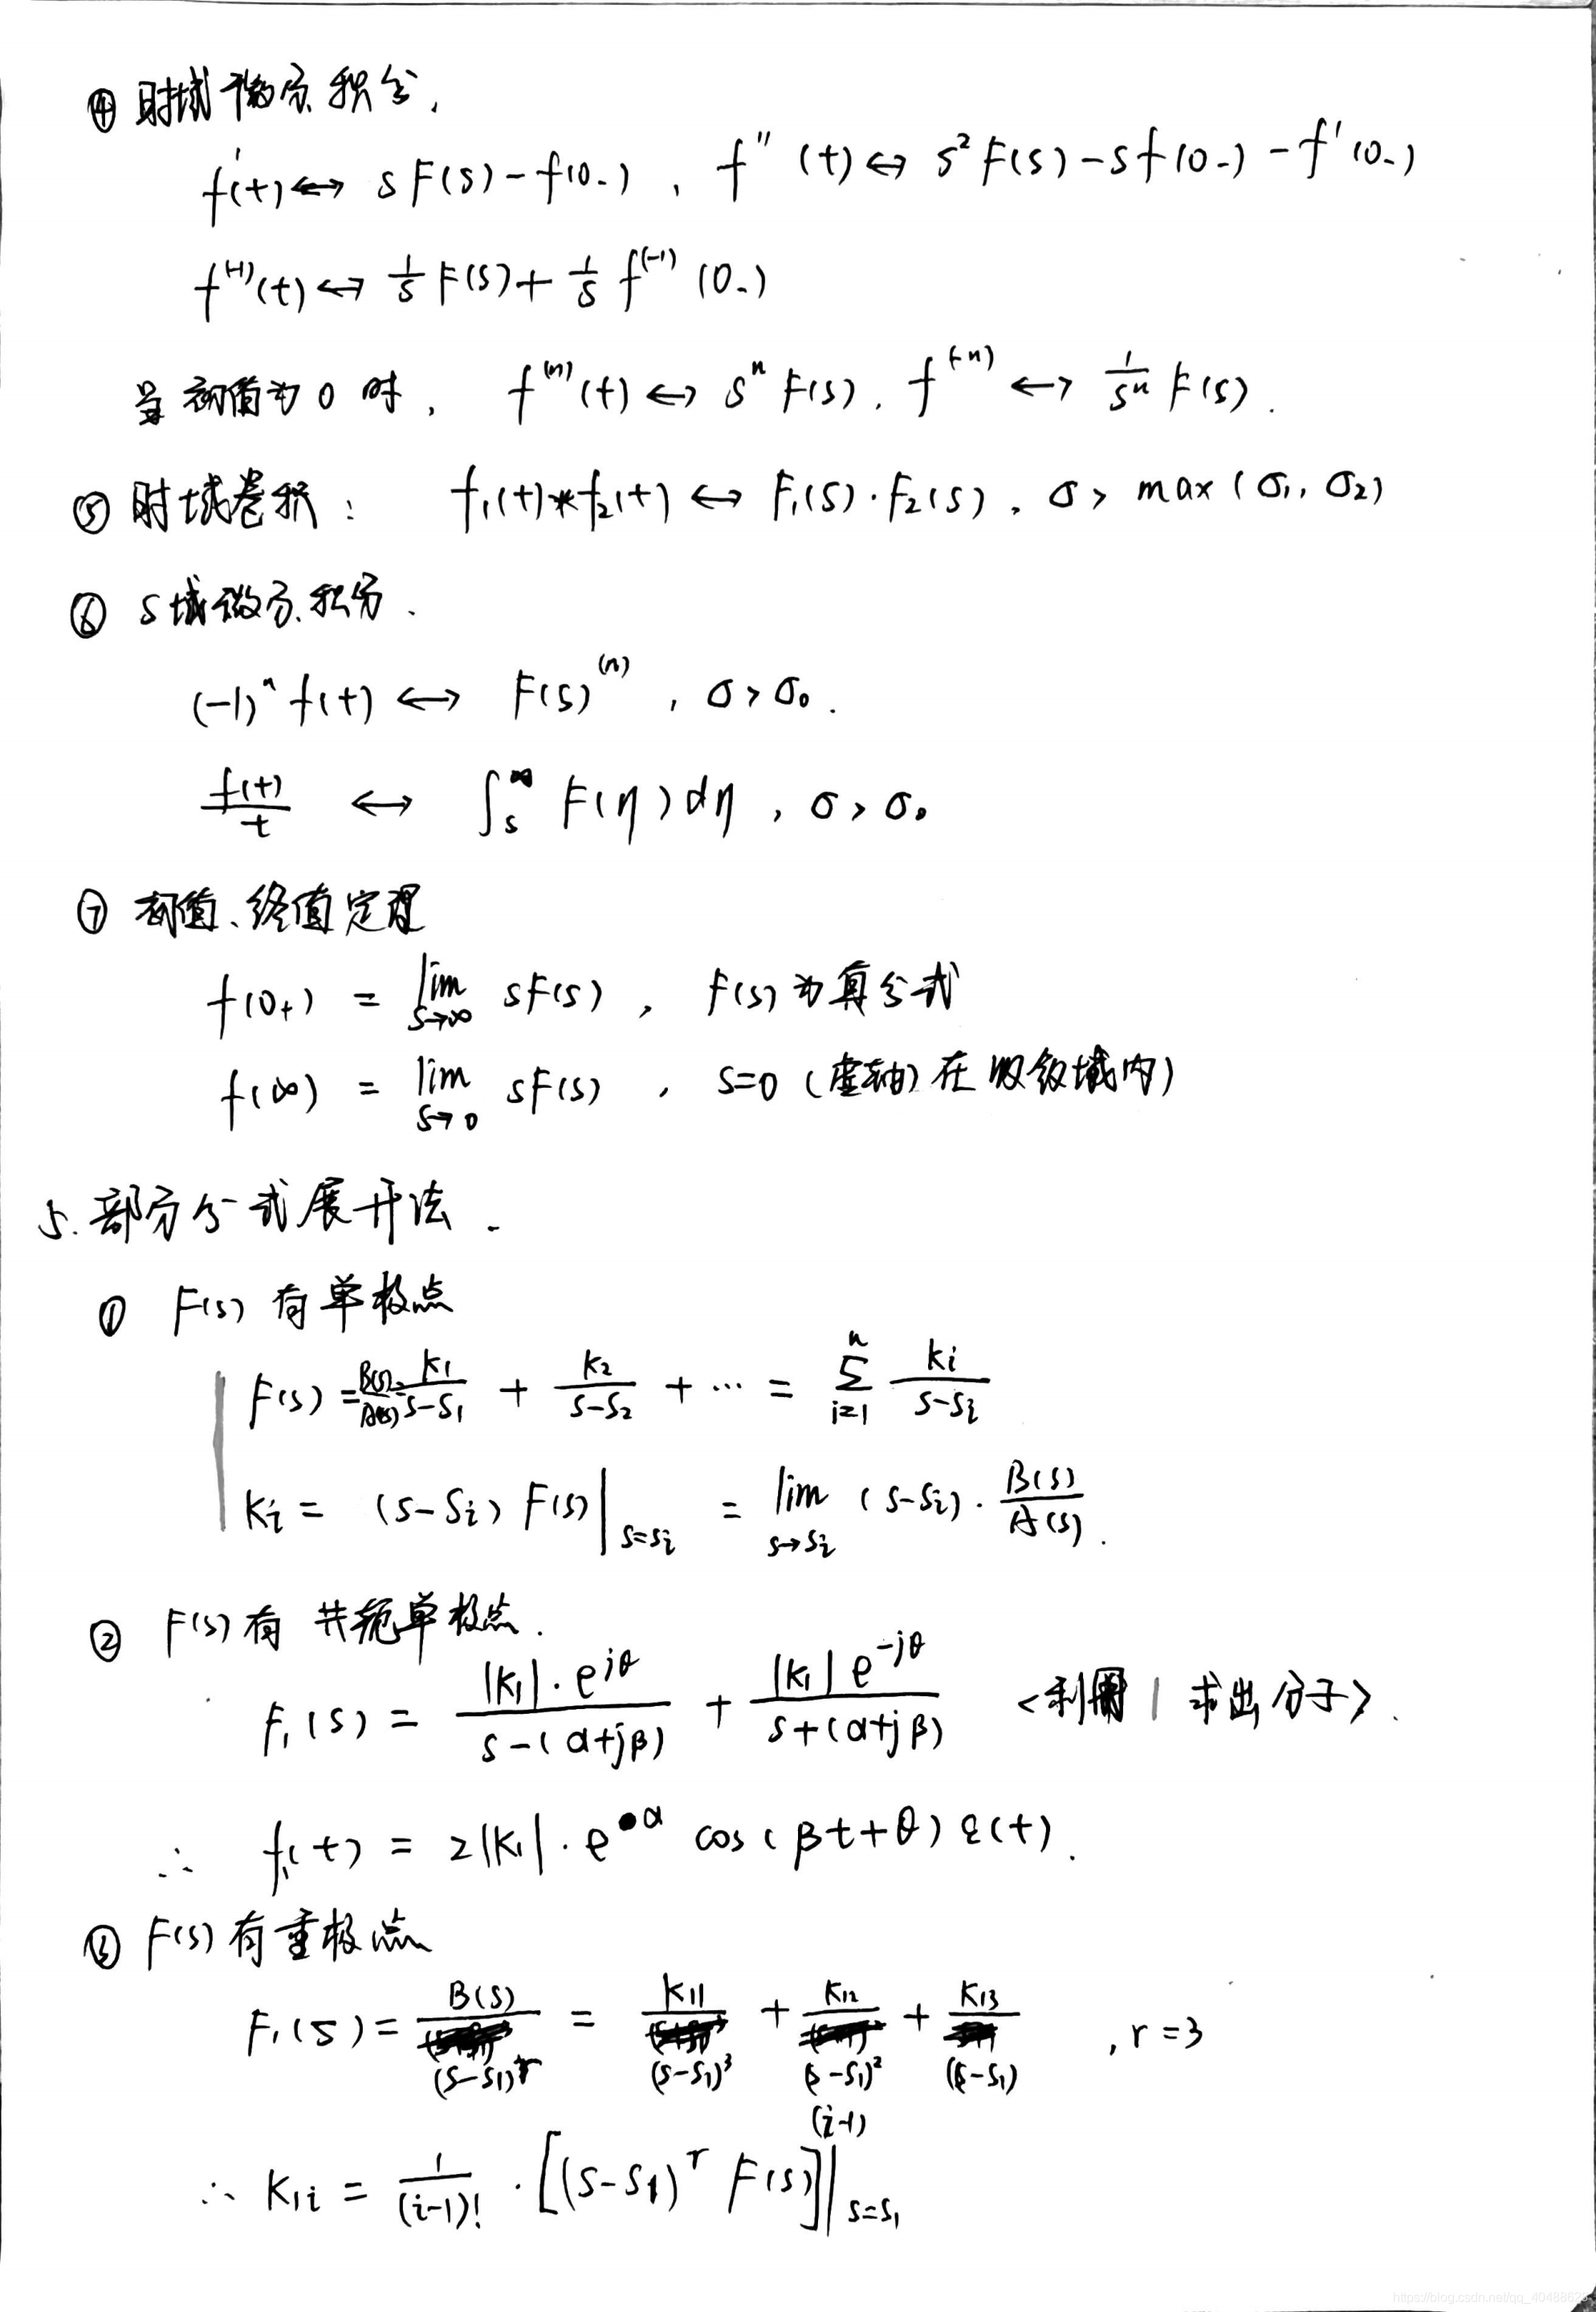 ④ 时域微分、积分.
f'(t) ↔ sF(s) - f(0-) , f''(t) ↔ s²F(s) - sf(0-) - f'(0-)
f^(-1)(t) ↔ 1/s F(s) + 1/s f^(-1)(0-)
当初值为0时, f^(n)(t) ↔ s^n F(s), f^(-n) ↔ 1/s^n F(s).
⑤ 时域卷积: f₁(t)*f₂(t) ↔ F₁(s)·F₂(s), σ > max(σ₁, σ₂)
⑥ S域微分、积分.
(-1)^n f(t) ↔ F(s)^(n) , σ > σ₀.
f(t)/t ↔ ∫_s^∞ F(η)dη , σ > σ₀
⑦ 初值、终值定理
f(0+) = lim_{s→∞} sF(s) , F(s)为真分式
f(∞) = lim_{s→0} sF(s) , s=0 (虚轴)在收敛域内)
5. 部分分式展开法.
① F(s) 有单极点
F(s) = B(s)/A(s) = k₁/(s-s₁) + k₂/(s-s₂) + ⋯ = Σ_{i=1}^{n} ki/(s-si)
ki = (s-si) F(s)|_{s=si} = lim_{s→si} (s-si)·B(s)/A(s).
② F(s)有 共轭单极点.
F₁(s) = |k₁|·e^{jθ}/(s-(α+jβ)) + |k₁|e^{-jθ}/(s+(α+jβ)) <利用 | 求出分子>.
∴ f₁(t) = 2|k₁|·e^α cos(βt+θ)ε(t).
③ F(s)有重极点
F₁(s) = B(s)/(s-s₁)^r = k₁₁/(s-s₁)³ + k₁₂/(s-s₁)² + k₁₃/(s-s₁) , r=3
∴ k₁i = 1/(i-1)! · [(s-s₁)^r F(s)]^(i-1)|_{s=s₁}